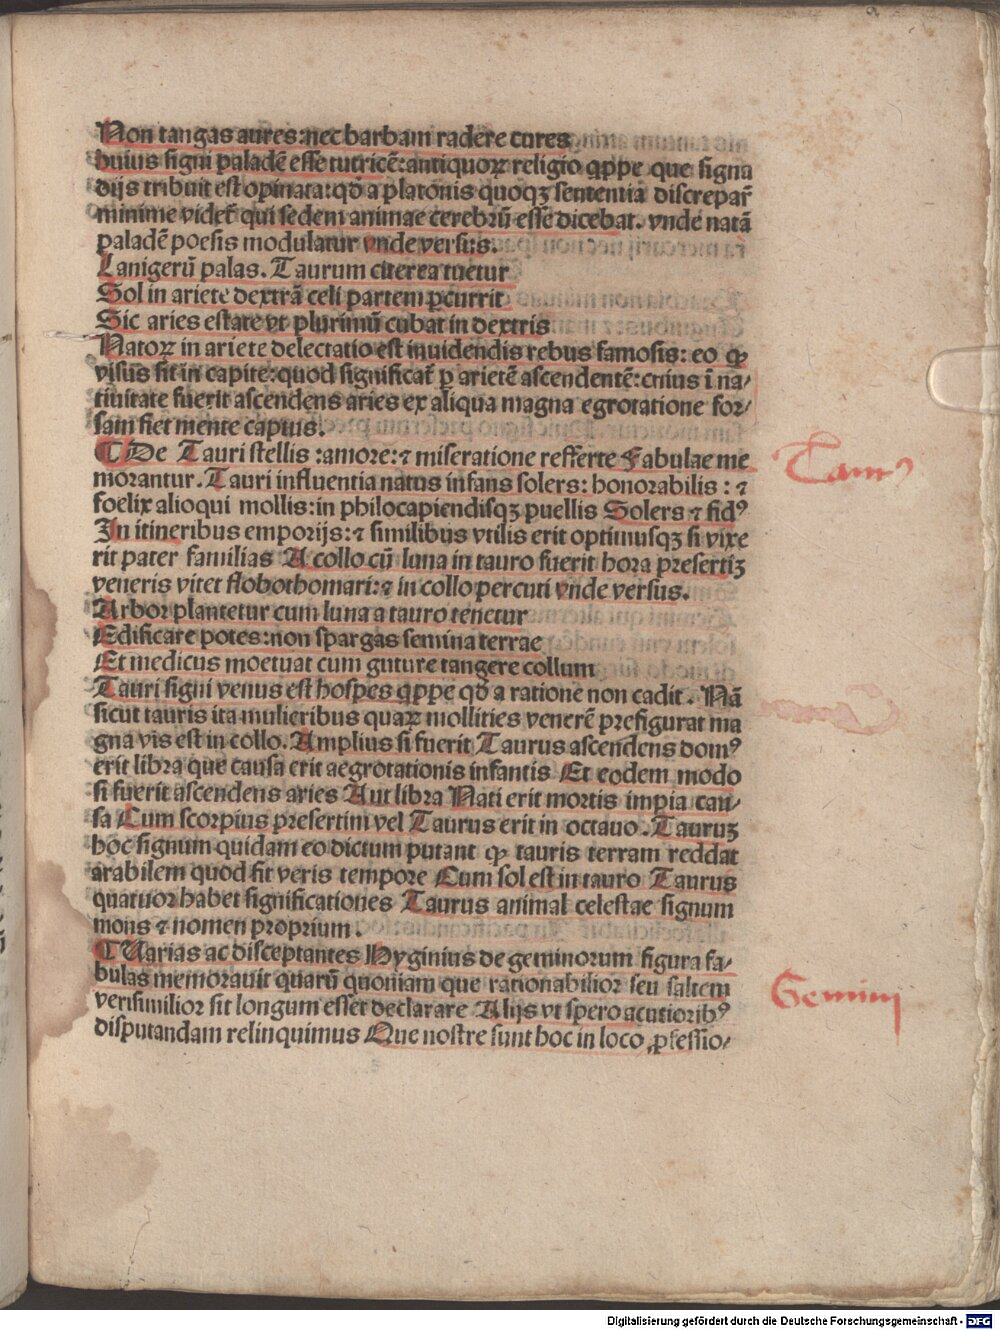 Non tangas aures:nec barbam radere cures
huius signi paladē esse tutricē:antiquoꝝ religio qppe que signa
dijs tribuit est opinata:qđ a platonis quoqꝫ sententia discrepar̄
minime videt̄ qui sedem animae cerebrū esse dicebat. vnde natā
paladē poesis modulatur vnde versus.
Lanigerū palas. Taurum citerea tuetur
Sol in ariete dextrā celi partem ꝑcurrit
Sic aries estate vt plurimū cubat in dextris
Natoꝝ in ariete delectatio est inuidendis rebus famosis: eo ꝙ
visus sit in capite:quod significat̄ ꝑ arietē ascendentē: cuius ī na/
tiuitate fuerit ascendens aries ex aliqua magna egrotatione for/
sam fiet mente captus.
¶ De Tauri stellis :amore: ⁊ miseratione refferte Fabulae me
morantur. Tauri influentia natus infans solers: honorabilis : ⁊
foelix alioqui mollis: in philocapiendisqꝫ puellis Solers ⁊ fidꝰ
In itineribus emporijs: ⁊ similibus vtilis erit optimusqꝫ si vixe
rit pater familias A collo cū luna in tauro fuerit hora presertiꝫ
veneris vitet flobothomari: ⁊ in collo percuti vnde versus.
Arbor plantetur cum luna a tauro tenetur
Edificare potes:non spargas semina terrae
Et medicus moetuat cum guture tangere collum
Tauri signi venus est hospes qppe qđ a ratione non cadit. Nā
sicut tauris ita mulieribus quaꝝ mollities venerē prefigurat ma
gna vis est in collo. Amplius si fuerit Taurus ascendens domꝰ
erit libra que causa erit aegrotationis infantis Et eodem modo
si fuerit ascendens aries Aut libra Nati erit mortis impia cau/
sa Cum scorpius presertim vel Taurus erit in octauo. Tauruꝫ
hoc signum quidam eo dictum putant ꝙ tauris terram reddat
arabilem quod fit veris tempore Cum sol est in tauro Taurus
quatuor habet significationes Taurus animal celestae signum
mons ⁊ nomen proprium.
¶ Uarias ac disceptantes Hyginius de geminorum figura fa/
bulas memorauit quarū quoniam que rationabilior seu saltem
verisimilior sit longum esset declarare Alijs vt spero acutioribꝰ
disputandam relinquimus Que nostre sunt hoc in loco ꝓfessio/
Taurꝰ
Gemini
Digitalisierung gefördert durch die Deutsche Forschungsgemeinschaft - DFG